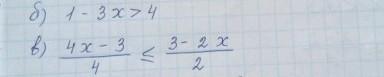 б) 1 - 3x > 4
в) (4x - 3)/4 ≤ (3 - 2x)/2